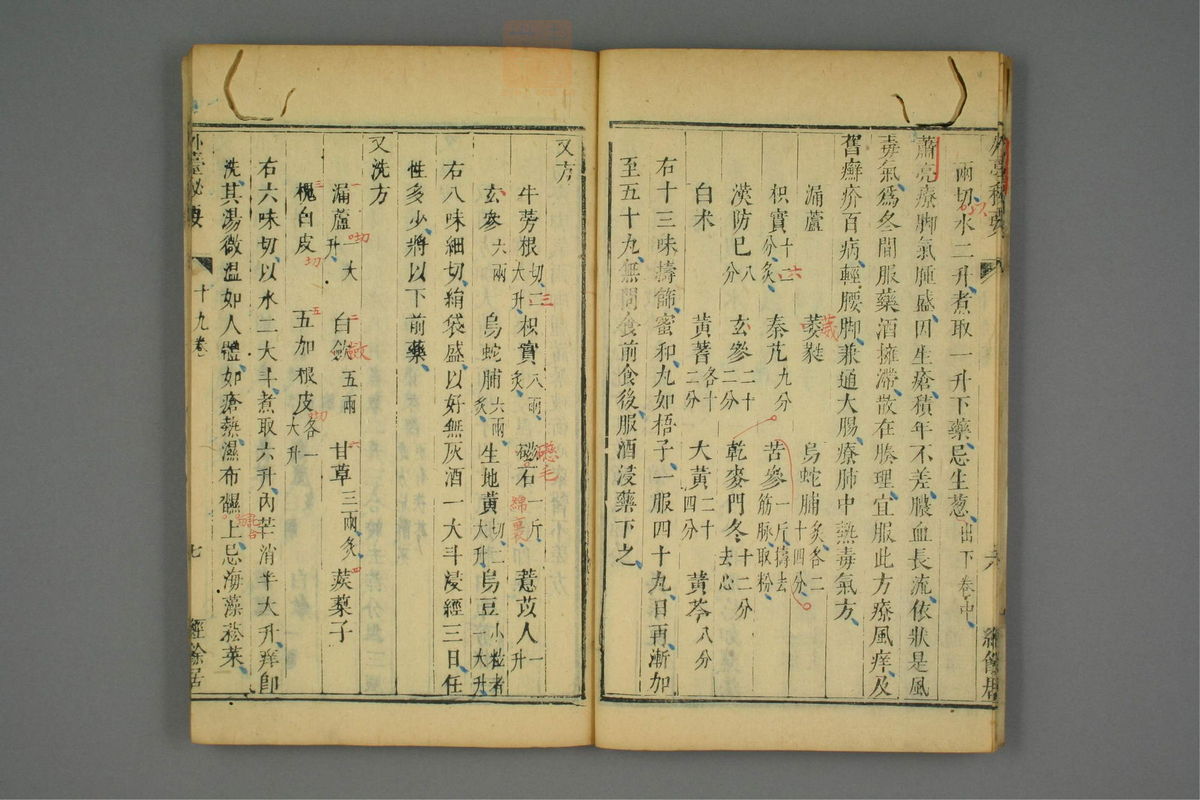 外臺秘要
兩切水二升煮取一升下藥忌生葱出下卷中
蕭亮療脚氣腫盛因生瘡積年不差膿血長流依狀是風
毒氣爲冬間服藥酒擁滯散在腠理宜服此方療風痒及
舊癬疥百病輕腰脚兼通大腸療肺中熱毒氣方
漏蘆 萎蕤 烏蛇脯炙各二十四分
枳實十二分炙 秦艽九分 苦參一斤擣去筋脉取粉
漢防巳八分 玄參二十二分 乾麥門冬十二分去心
白术 黃蓍各十二分 大黃二十四分 黃芩八分
右十三味擣篩蜜和丸如梧子一服四十九日再漸加
至五十九無問食前食後服酒浸藥下之
又方
牛蒡根切二大升 枳實八兩炙 磁石一斤 薏苡人一升
玄參六兩 烏蛇脯六兩炙 生地黃切二大升 烏豆小粒者一大升
右八味細切絹袋盛以好無灰酒一大斗浸經三日任
性多少將以下前藥
又洗方
漏蘆一大升 白斂五兩 甘草三兩炙 蒺蔾子
槐白皮 五加根皮各一大升
右六味切以水二大斗煮取六升內芒消半大升痒卽
洗其湯微溫如人體如瘡熱濕布搨上忌海藻菘菜
外臺秘要 十九卷 七 經餘居